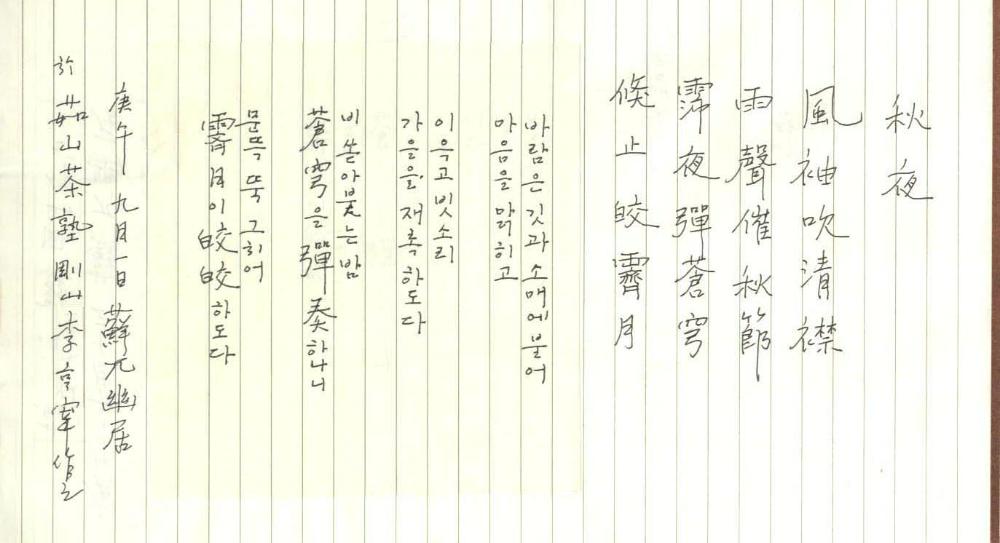 秋夜
風袖吹清襟
雨聲催秋節
霈夜彈蒼穹
倏止皎霽月
바람은 깃과 소매에 불어
마음을 맑히고
이윽고 빗소리
가을을 재촉하도다
비 쏟아붓는 밤
蒼穹을 彈奏하나니
문뜩 뚝 그치어
霽月이 皎皎하도다
庚午 九月 一日 蘇九幽居
於 茹山茶塾 剛山 李